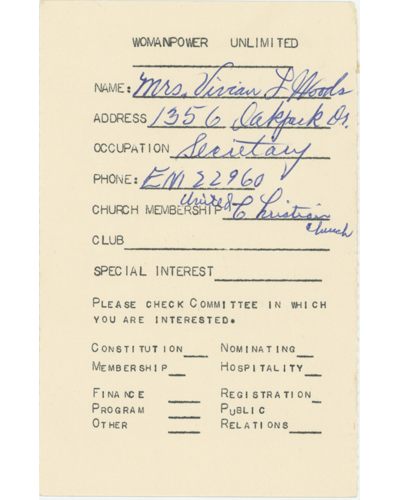 WOMANPOWER UNLIMITED
NAME: Mrs. Vivian L Woods
ADDRESS 1356 Oakpark Dr.
OCCUPATION Secretary
PHONE: EM 22960
CHURCH MEMBERSHIP United Christian Church
CLUB
SPECIAL INTEREST
PLEASE CHECK COMMITTEE IN WHICH
YOU ARE INTERESTED.
CONSTITUTION NOMINATING
MEMBERSHIP HOSPITALITY
FINANCE REGISTRATION
PROGRAM PUBLIC
OTHER RELATIONS